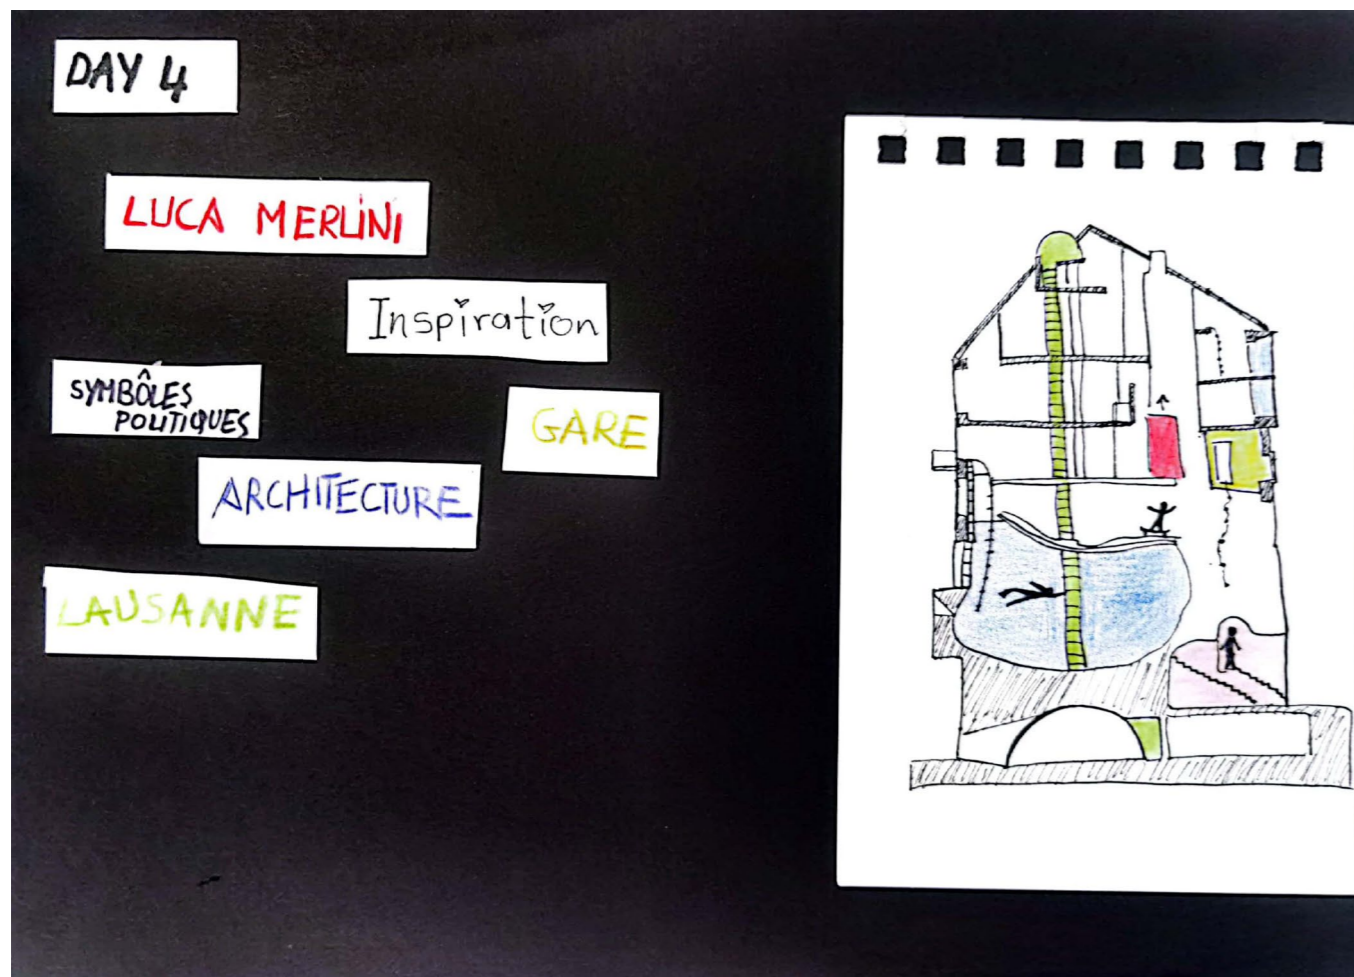 DAY 4
LUCA MERLINI
Inspiration
SYMBÔLES
POLITIQUES
GARE
ARCHITECTURE
LAUSANNE